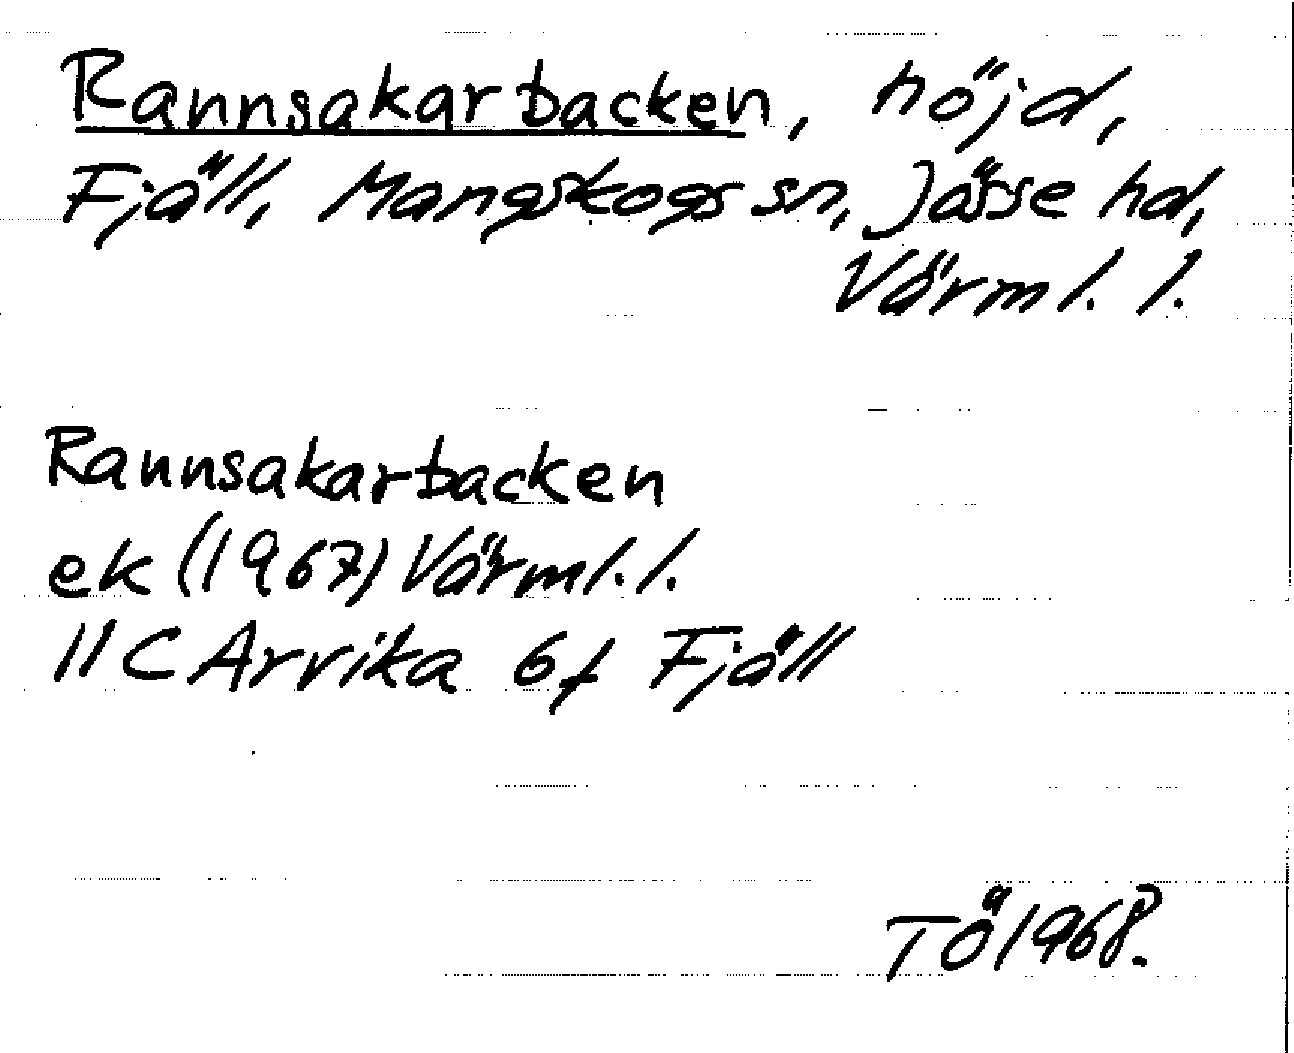 Rannsakarbacken, höjd,
Fjäll, Mangskogs sn, Jösse hd,
Värml. l.
Rannsakarbacken
ek (1967) Värml. l.
11C Arvika 6f Fjäll
TÖ 1968.